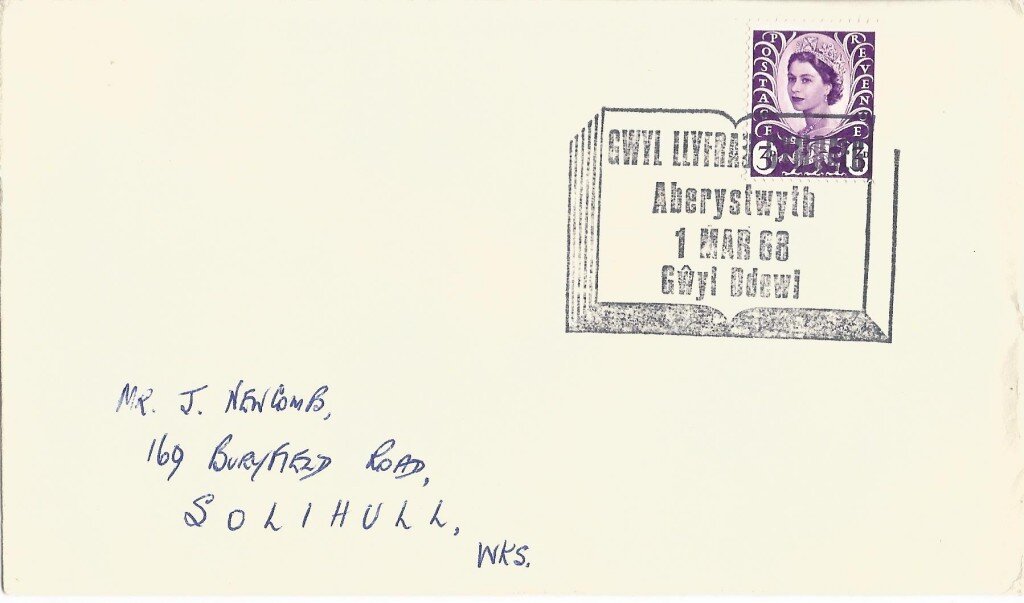 POSTAGE REVENUE
3D
GWYL LLYFRAU
Aberystwyth
1 MAR 68
Gŵyl Ddewi
MR. J. NEWCOMB,
169 BURYFIELD ROAD,
SOLIHULL,
WKS.